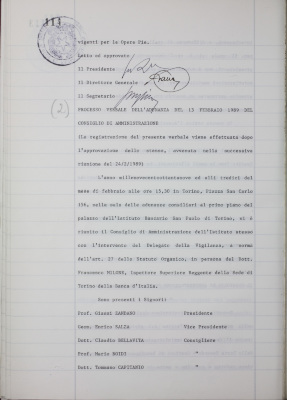 113
vigenti per le Opere Pie.
Letto ed approvato
Il Presidente
Il Direttore Generale
Il Segretario
(2)
PROCESSO VERBALE DELL'ADUNANZA DEL 13 FEBBRAIO 1989 DEL
CONSIGLIO DI AMMINISTRAZIONE
(La registrazione del presente verbale viene effettuata dopo
l'approvazione dello stesso, avvenuta nella successiva
riunione del 24/2/1989)
L'anno millenovecentottantanove ed alli tredici del
mese di febbraio alle ore 15,30 in Torino, Piazza San Carlo
156, nella sala delle adunanze consiliari al primo piano del
palazzo dell'Istituto Bancario San Paolo di Torino, si è
riunito il Consiglio di Amministrazione dell'Istituto stesso
con l'intervento del Delegato della Vigilanza, a norma
dell'art. 27 dello Statuto Organico, in persona del Dott.
Francesco MILONE, Ispettore Superiore Reggente della Sede di
Torino della Banca d'Italia.
Sono presenti i Signori:
Prof. Gianni ZANDANO Presidente
Gerr. Enrico SALZA Vice Presidente
Dott. Claudio BELLAVITA Consigliere
Prof. Mario BOIDI "
Dott. Tommaso CAPITANIO "